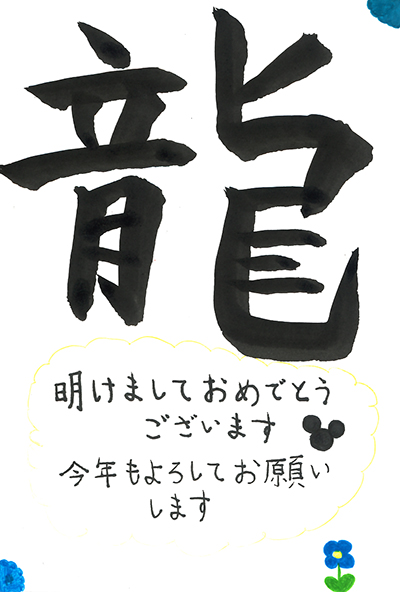 龍
明けましておめでとう
ございます
今年もよろしてお願い
します